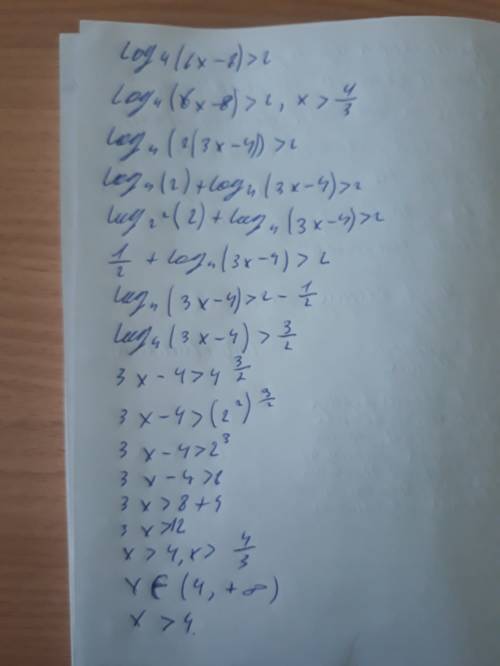 log₄(6x-8)>2
log₄(6x-8)>2, x>4/3
log₄(2(3x-4))>2
log₄(2)+log₄(3x-4)>2
log₂²(2)+log₄(3x-4)>2
1/2+log₄(3x-4)>2
log₄(3x-4)>2-1/2
log₄(3x-4)>3/2
3x-4>4^(3/2)
3x-4>(2²)^(3/2)
3x-4>2³
3x-4>8
3x>8+4
3x>12
x>4, x>4/3
x∈(4,+∞)
x>4.